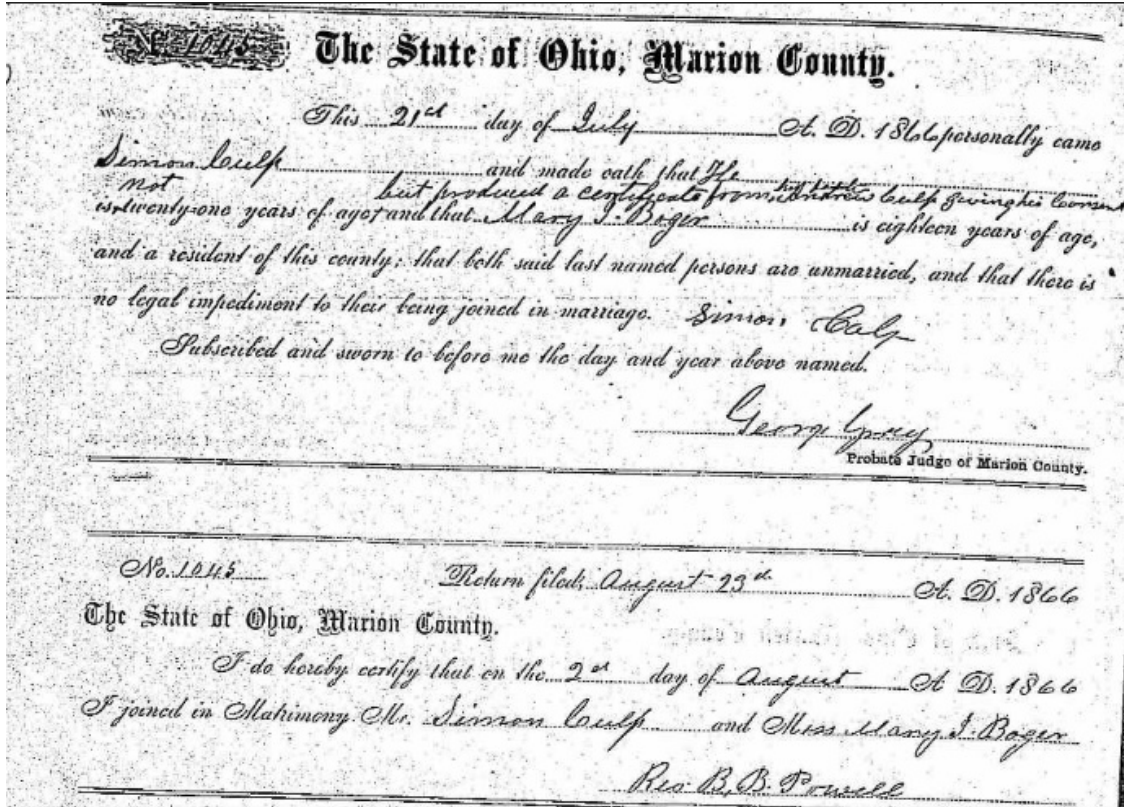 No 1045 The State of Ohio, Marion County.
This 21st day of July A. D. 1866 personally came
Simon Culp and made oath that He
not but produced a certificate from Culp giving his consent
is twenty-one years of age, and that Mary J. Boger is eighteen years of age,
and a resident of this county; that both said last named persons are unmarried, and that there is
no legal impediment to their being joined in marriage. Simon Culp
Subscribed and sworn to before me the day and year above named.
George Gray
Probate Judge of Marion County.
No. 1045 Return filed, August 23d A. D. 1866
The State of Ohio, Marion County.
I do hereby certify that on the 2nd day of August A. D. 1866
I joined in Matrimony Mr. Simon Culp and Miss Mary J. Boger
Rev B. B. Powell